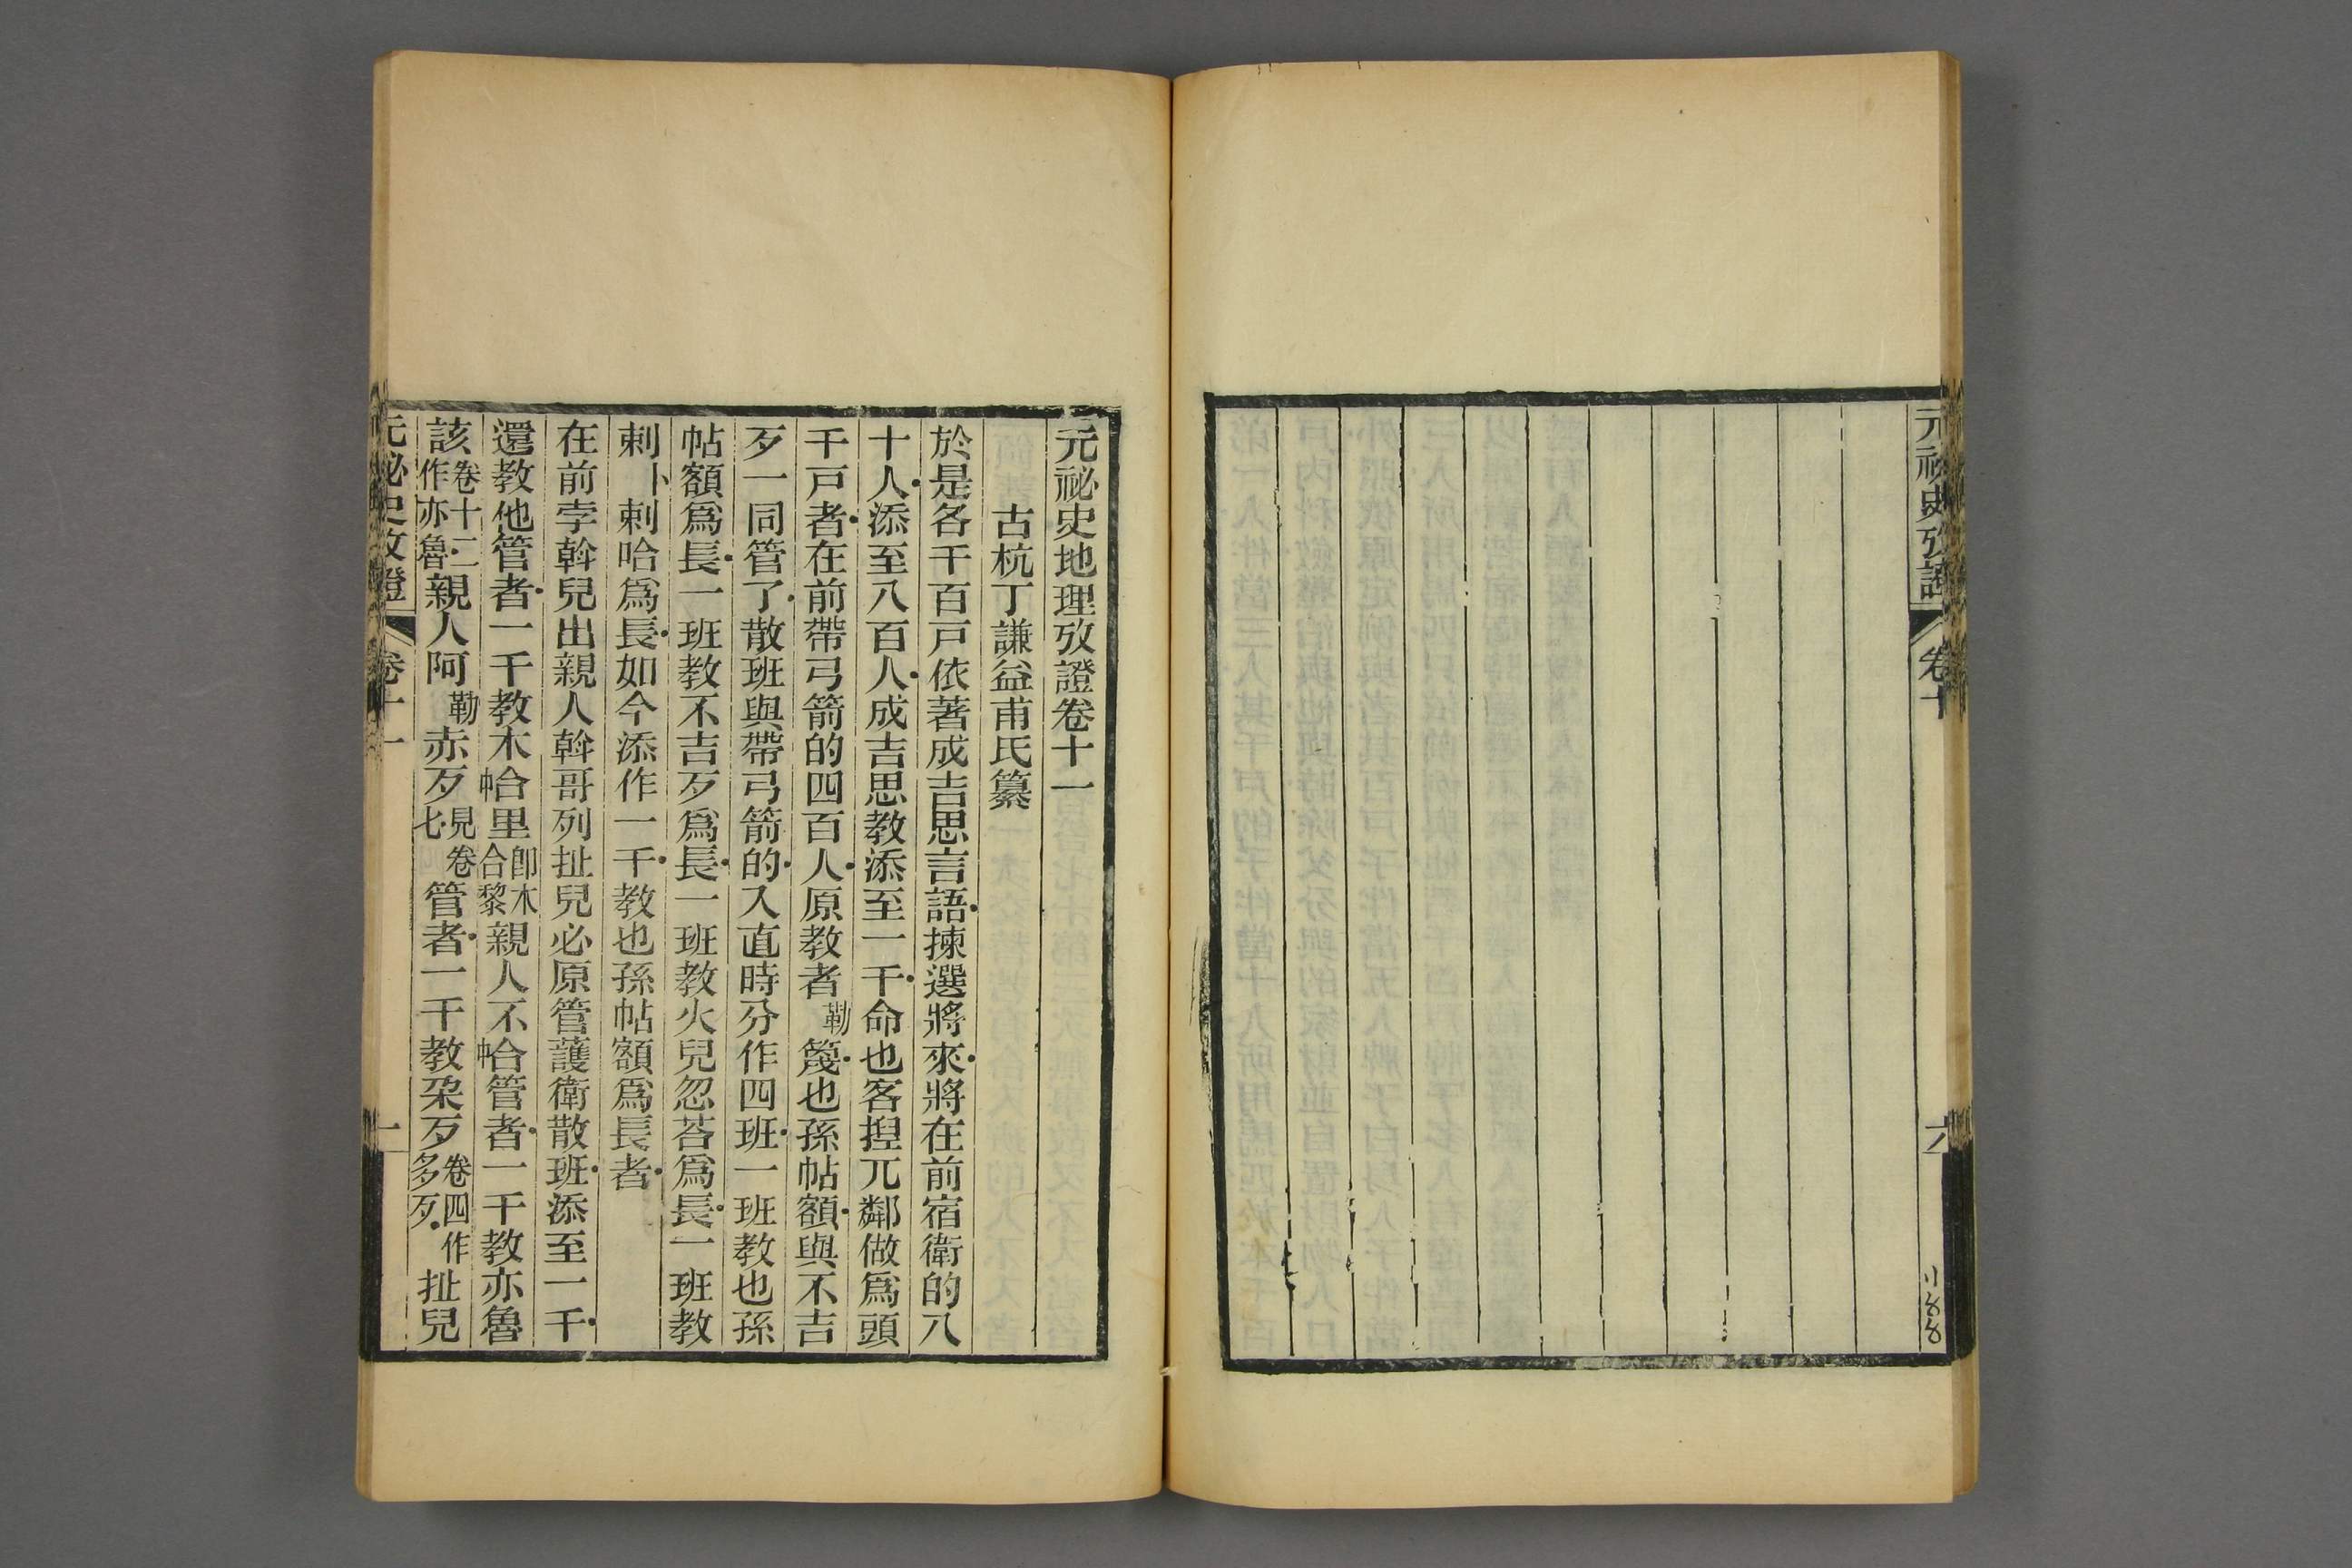 元祕史攷證
卷十
六
元祕史地理攷證卷十一
古杭丁謙益甫氏纂
於是各千百戸依著成吉思言語揀選將來將在前宿衛的八
十人添至八百人成吉思教添至一千命也客揑兀鄰做爲頭
千戸者在前帶弓箭的四百人原教者勒篾也孫帖額與不吉
歹一同管了散班與帶弓箭的入直時分作四班一班教也孫
帖額爲長一班教不吉歹爲長一班教火兒忽荅爲長一班教
剌卜剌哈爲長如今添作一千教也孫帖額爲長者
在前孛斡兒出親人斡哥列扯兒必原管護衛散班添至一千
還教他管者一千教木中合里卽木合黎親人不中合管者一千教亦魯
該卷十二作亦魯親人阿勒赤歹見卷七管者一千教朶歹卷四作多歹扯兒
元祕史攷證
卷十一
一